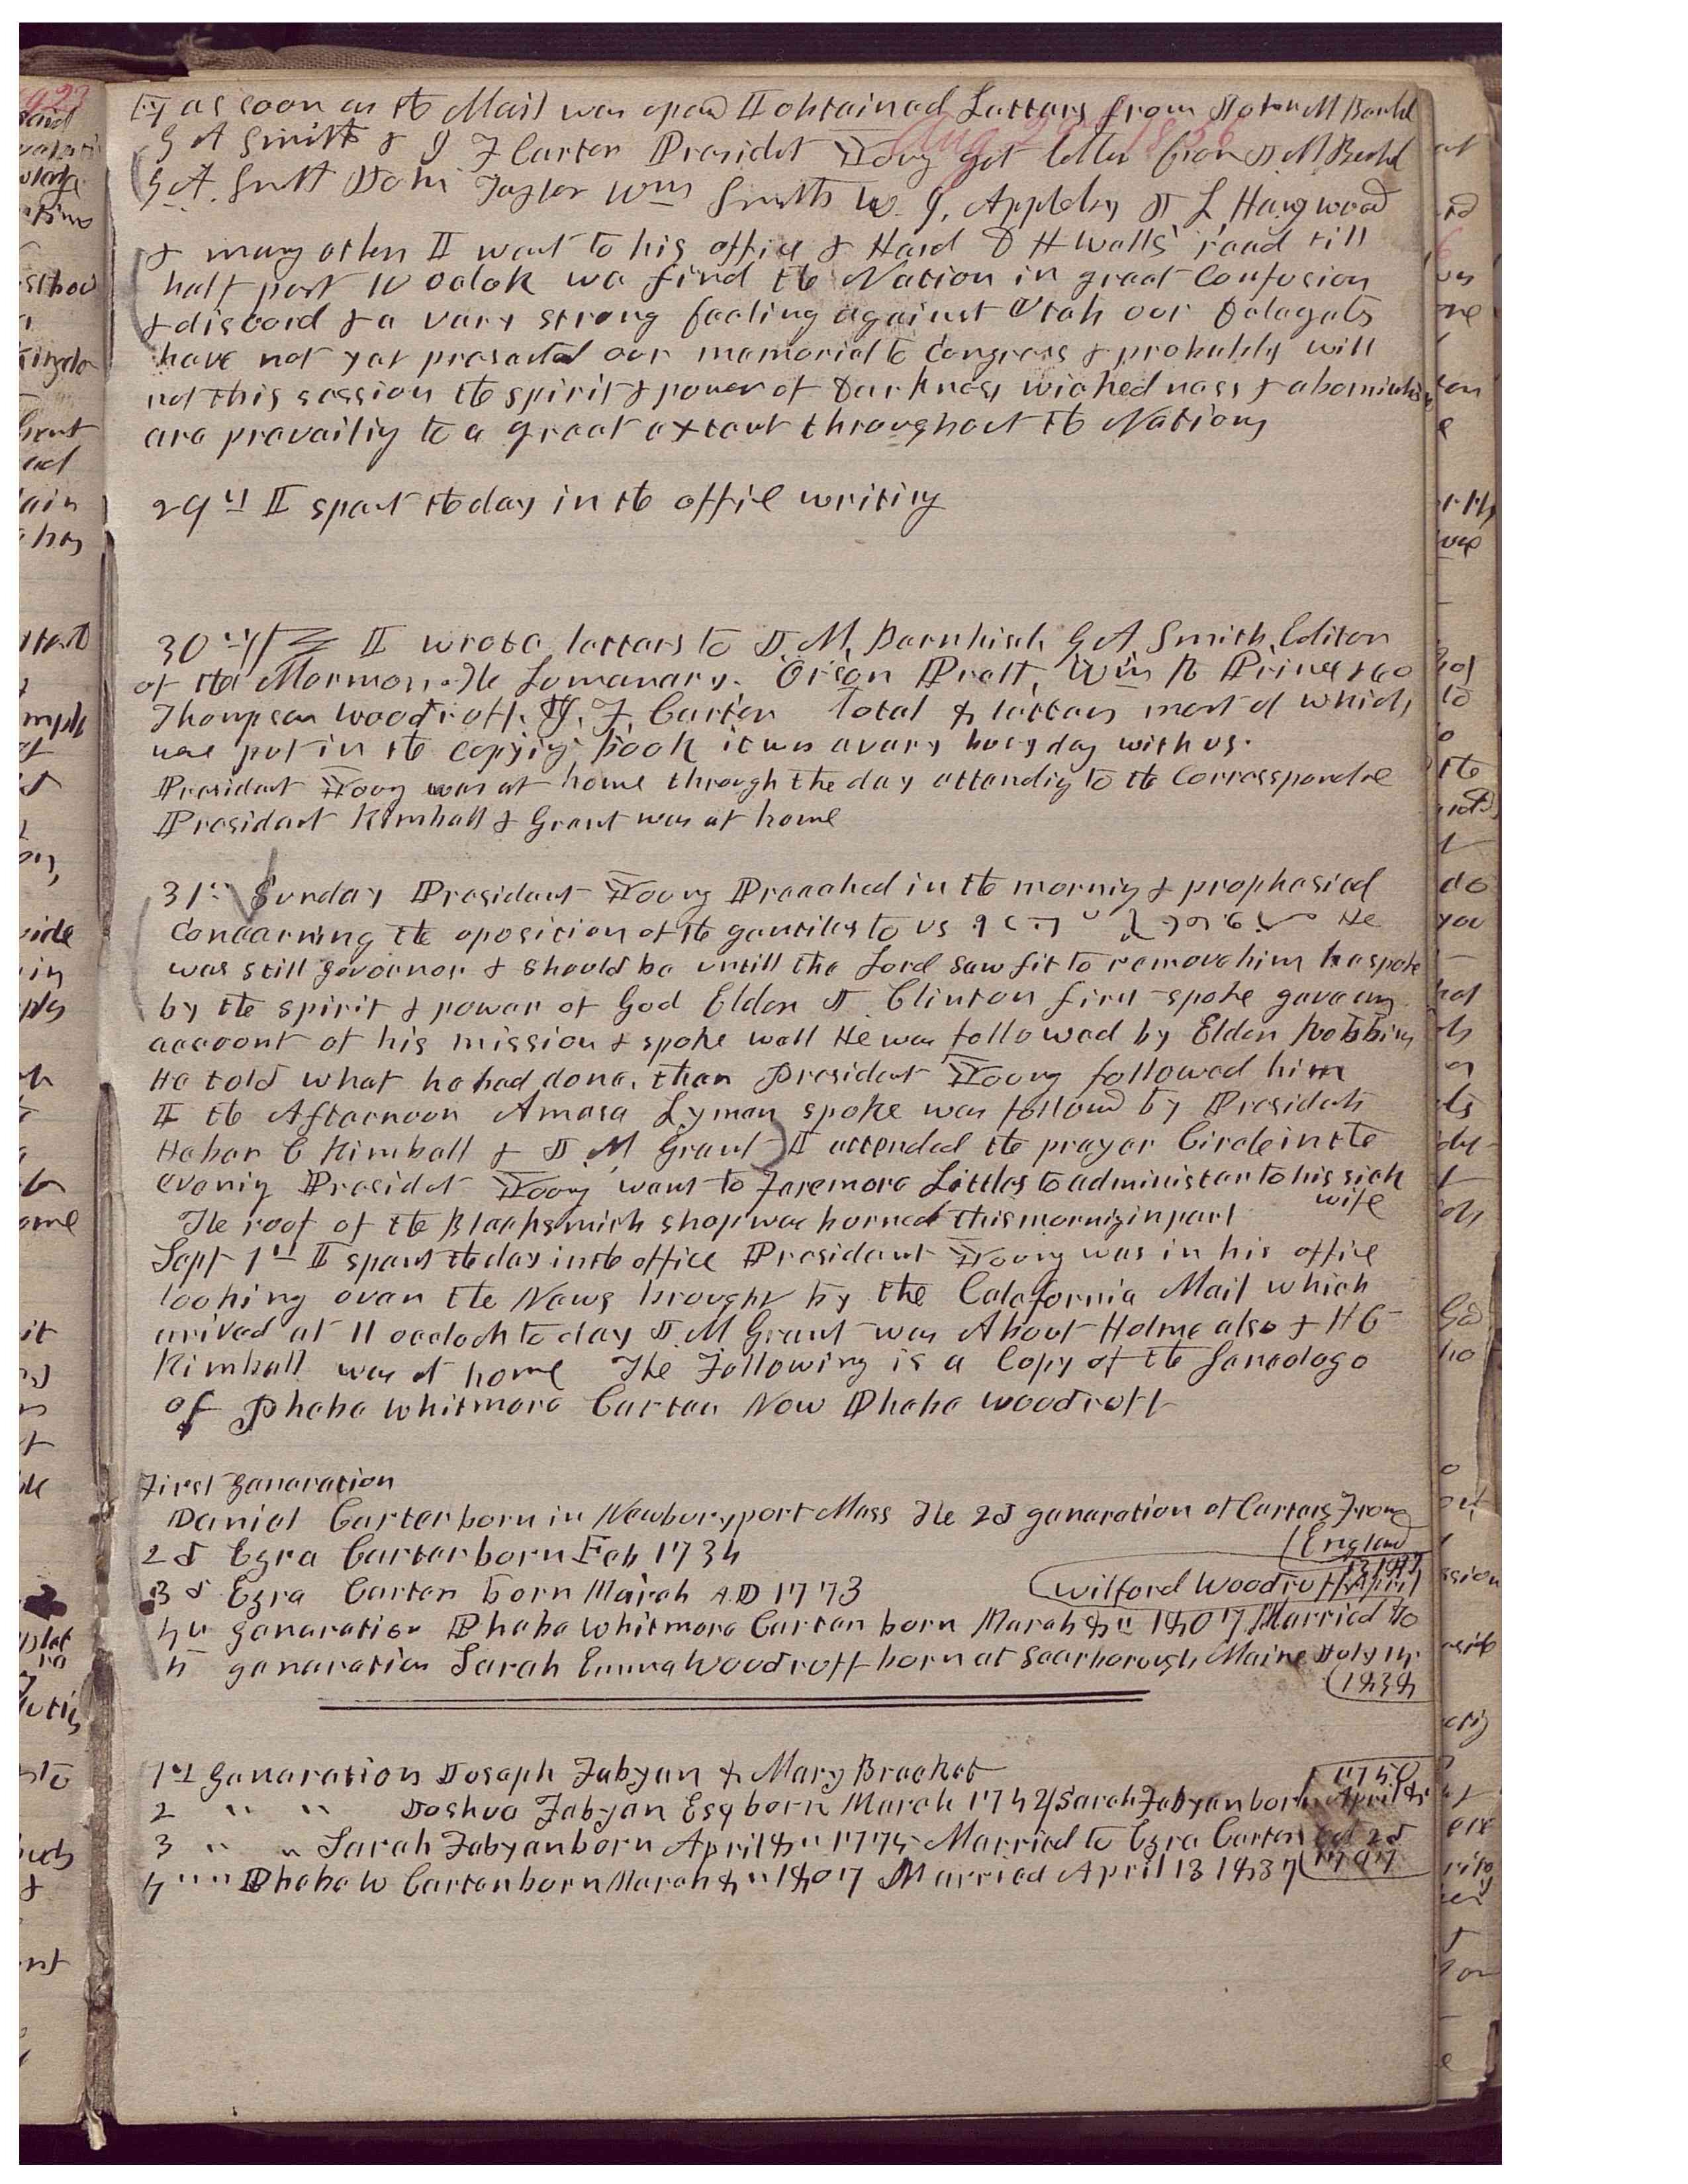 as soon as the Mail was open I obtained Letters from John M Bernhl
Aug 29th 1856
G A Smith & I F Carter Presidet Young got letter from J. M Berhl
G. A. Smith John Taylor Wm Smith W. I. Appleby J L Haywood
& many others I went to his office & Heard D H Wells read till
half past 10 oclok we find the Nation in great Confusion
& discord & a very strong feeling against Utah our Delegates
have not yet presented our memorial to Congress & probubly will
not this session the spirit & power of Darkness wickedness & abomination
are prevailig to a great extent throughout the Nations
29th I spent the day in the offie writing
30th I wrote letters to J. M. Bernhisel, G A. Smith, Editor
of the Mormon. The Lumanary. Orson Pratt, Wm
Thompson Woodruff. I. F. Carter Total 8 letters most of which
was put in the copyig book it was a very busy day with us.
President Young was at home through the day attendig to the Correspondce
President Kimball & Grant was at home
31st Sunday President Young Preached in the mornig & prophesied
Concerning the oposition of the gentiles to us He
was still governor & should be untill the Lord saw fit to remove him he spoke
by the spirit & power of God Elder J Clinton first spoke gave any
account of his mission & spoke well He was followed by Elder Robbins
He told what he had done, then President Young followed him
I the Afternoon Amasa Lyman spoke was followd by Presidets
Heber C Kimball & J. M Grant I attended the prayer Circle in the
evenig Presidet Young went to Feremore Littles to administer to his sick
wife
The roof of the Blacksmith shop was burned this mornig in part
Sept 1st I spent the day in the office President Young was in his office
looking over the News brought by the Calefornia Mail which
arived at 11 oclock to day J. M Grant was About Home also & H C
Kimball was at home The Following is a Copy of the Geneologo
of Phebe Whitmore Carter Now Phebe Woodruff
First Generation
Daniel Carter born in Newburyport Mass The 2d generation of Carters From
England
2d Ezra Carter born Feb 1734
3d Ezra Carter born March AD 1773
Wilford Woodruff April
13 1837
4th generation Phebe Whitmore Carter born March 8th 1807 Married to
5 generation Sarah Emma Woodruff born at Scarborough Maine July 14
1838
1st Generation Joseph Fabyan & Mary Bracket
2 " " Joshua Fabyan Esq born March 1742 / Sarah Fabyan born April 8
1750
3 " " Sarah Fabyan born April 8th 1775 Married to Ezra Carter Oct 2d
1797
4 " " Phebe W Carter born March 8th 1807 Married April 13 1837